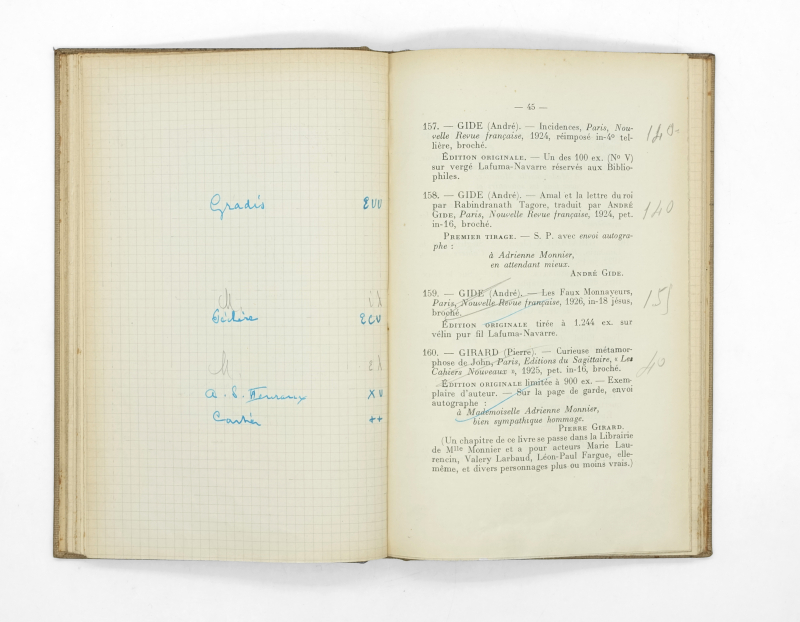 Gradis EUU
M
ECU
M
XU
Cartier ++
— 45 —
157. — GIDE (André). — Incidences, Paris, Nou-
velle Revue française, 1924, réimposé in-4º tel-
lière, broché.
140
ÉDITION ORIGINALE. — Un des 100 ex. (Nº V)
sur vergé Lafuma-Navarre réservés aux Biblio-
philes.
158. — GIDE (André). — Amal et la lettre du roi
par Rabindranath Tagore, traduit par ANDRÉ
GIDE, Paris, Nouvelle Revue française, 1924, pet.
in-16, broché.
140
PREMIER TIRAGE. — S. P. avec envoi autogra-
phe :
à Adrienne Monnier,
en attendant mieux.
ANDRÉ GIDE.
159. — GIDE (André). — Les Faux Monnayeurs,
Paris, Nouvelle Revue française, 1926, in-18 jésus,
broché.
155
ÉDITION ORIGINALE tirée à 1.244 ex. sur
vélin pur fil Lafuma-Navarre.
160. — GIRARD (Pierre). — Curieuse métamor-
phose de John, Paris, Editions du Sagittaire, « Les
Cahiers Nouveaux », 1925, pet. in-16, broché.
40
ÉDITION ORIGINALE limitée à 900 ex. — Exem-
plaire d'auteur. — Sur la page de garde, envoi
autographe :
à Mademoiselle Adrienne Monnier,
bien sympathique hommage.
PIERRE GIRARD.
(Un chapitre de ce livre se passe dans la Librairie
de Mlle Monnier et a pour acteurs Marie Lau-
rencin, Valery Larbaud, Léon-Paul Fargue, elle-
même, et divers personnages plus ou moins vrais.)